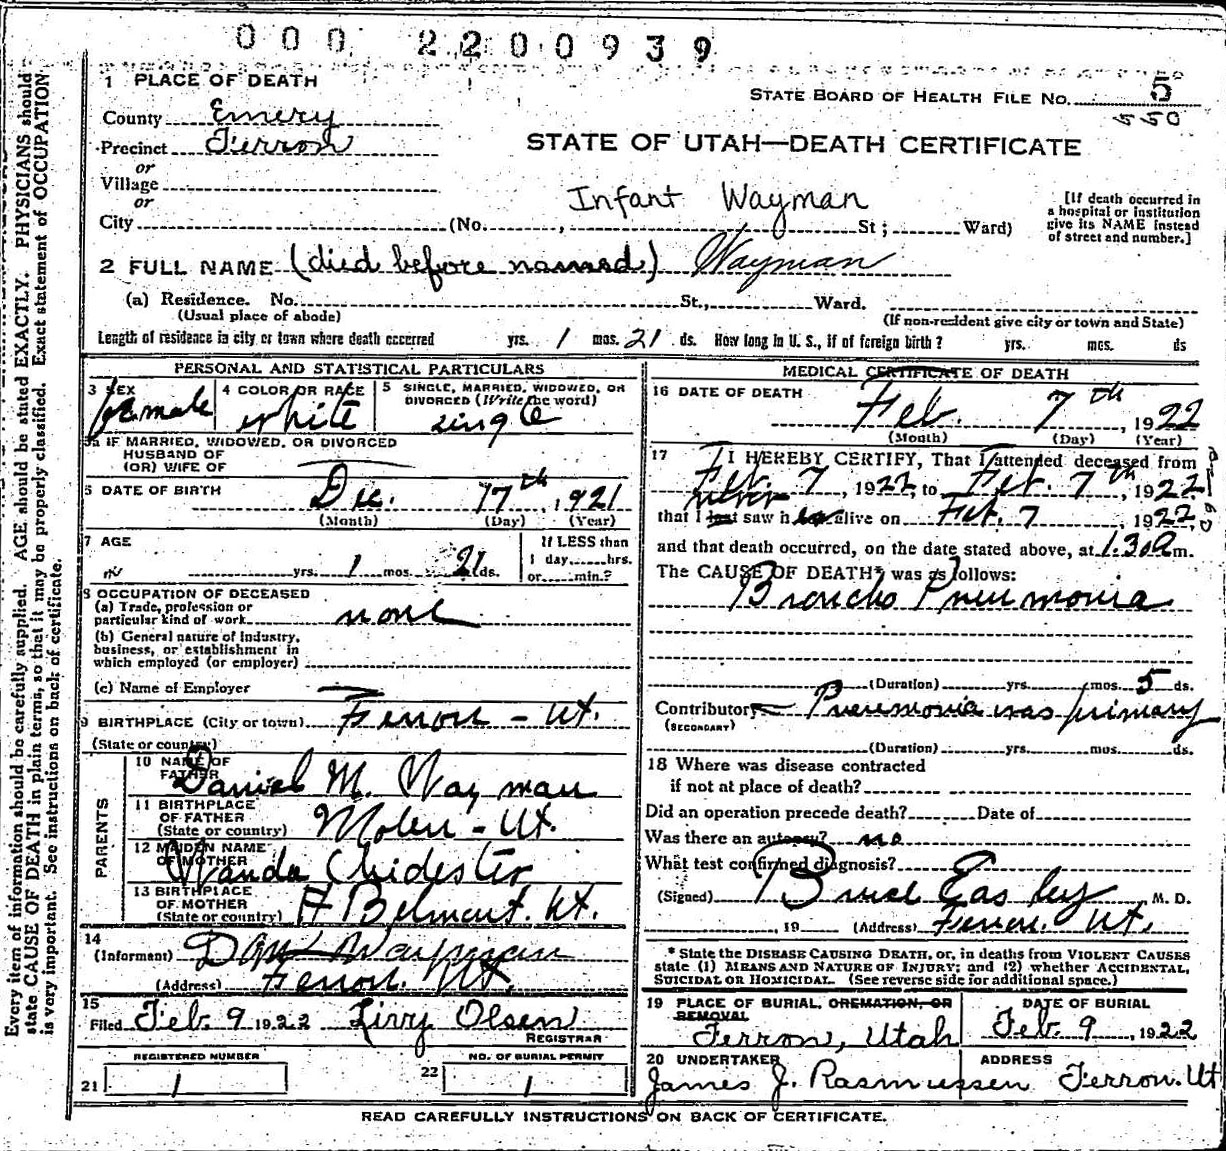 000 2200939
1 PLACE OF DEATH
STATE BOARD OF HEALTH FILE NO. 5
550
County Emery
Precinct Ferron
or
Village
or
STATE OF UTAH—DEATH CERTIFICATE
Infant Wayman
City (No. , St; Ward)
[If death occurred in
a hospital or institution
give its NAME instead
of street and number.]
2 FULL NAME (died before named) Wayman
(a) Residence. No. St., Ward.
(Usual place of abode)
(If non-resident give city or town and State)
Length of residence in city or town where death occurred yrs. 1 mos. 21 ds. How long in U. S., if of foreign birth? yrs. mos. ds
PERSONAL AND STATISTICAL PARTICULARS
3 SEX
female
4 COLOR OR RACE
white
5 SINGLE, MARRIED, WIDOWED, OR
DIVORCED (Write the word)
single
5a IF MARRIED, WIDOWED, OR DIVORCED
HUSBAND OF
(OR) WIFE OF
6 DATE OF BIRTH Dec. 17th, 1921
(Month) (Day) (Year)
7 AGE
yrs. 1 mos. 21 ds.
If LESS than
1 day......hrs.
or......min.?
8 OCCUPATION OF DECEASED
(a) Trade, profession or
particular kind of work none
(b) General nature of industry,
business, or establishment in
which employed (or employer)
(c) Name of Employer
9 BIRTHPLACE (City or town) Ferron - Ut.
(State or country)
PARENTS
10 NAME OF
FATHER
Daniel M. Wayman
11 BIRTHPLACE
OF FATHER
(State or country) Molen - Ut.
12 MAIDEN NAME
OF MOTHER
Wanda Chidester
13 BIRTHPLACE
OF MOTHER
(State or country) Belmont. Ut.
14
(Informant) Dan Wayman
(Address) Ferron. Ut.
15
Filed Feb. 9 1922 Livy Olsen
REGISTRAR
REGISTERED NUMBER
21 1
NO. OF BURIAL PERMIT
22 1
MEDICAL CERTIFICATE OF DEATH
16 DATE OF DEATH
Feb. 7th, 1922
(Month) (Day) (Year)
17 I HEREBY CERTIFY, That I attended deceased from
Feb. 7, 1922, to Feb. 7th, 1922
never
that I last saw h alive on Feb. 7 1922
and that death occurred, on the date stated above, at 1.30 a m.
The CAUSE OF DEATH* was as follows:
Broncho Pneumonia
(Duration) yrs. mos. 5 ds.
Contributory Pneumonia was primary
(SECONDARY)
(Duration) yrs. mos. ds.
18 Where was disease contracted
if not at place of death?
Did an operation precede death? Date of
Was there an autopsy? no
What test confirmed diagnosis?
(Signed) Bruce Easley M. D.
, 19 (Address) Ferron. Ut.
* State the DISEASE CAUSING DEATH, or, in deaths from VIOLENT CAUSES
state (1) MEANS AND NATURE OF INJURY; and (2) whether ACCIDENTAL,
SUICIDAL OR HOMICIDAL. (See reverse side for additional space.)
19 PLACE OF BURIAL, CREMATION, OR
REMOVAL
Ferron, Utah
DATE OF BURIAL
Feb. 9, 1922
20 UNDERTAKER
James J. Rasmussen
ADDRESS
Ferron. Ut
READ CAREFULLY INSTRUCTIONS ON BACK OF CERTIFICATE.
Every item of information should be carefully supplied. AGE should be stated EXACTLY. PHYSICIANS should
state CAUSE OF DEATH in plain terms, so that it may be properly classified. Exact statement of OCCUPATION
is very important. See instructions on back of certificate.